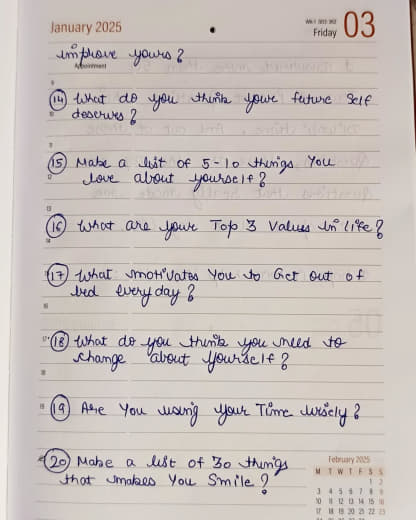 January 2025
Friday 03
improve yours?
Appointment
9
14 What do you think your future self
10
deserves?
11
15 Make a list of 5-10 things You
12
love about yourself?
13
16 What are your Top 3 Values in life?
14
17 What motivates You to Get out of
bed everyday?
16
17
18 What do you think you need to
change about Yourself?
18
19
19 Are You using your Time wisely?
20 Make a list of 30 things
that makes You Smile?
February 2025
M T W T F S S
1 2
3 4 5 6 7 8 9
10 11 12 13 14 15 16
17 18 19 20 21 22 23